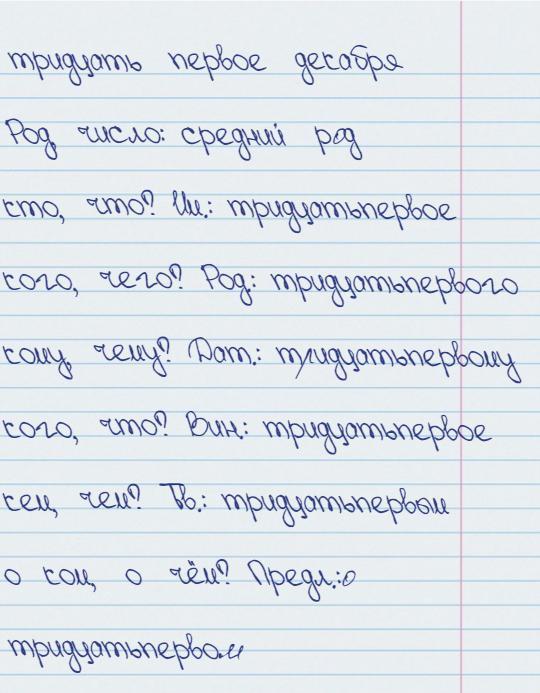 тридцать первое декабря
Род, число: средний род
кто, что? Им.: тридцатьпервое
кого, чего? Род.: тридцатьпервого
кому, чему? Дат.: тридцатьпервому
кого, что? Вин.: тридцатьпервое
кем, чем? Тв.: тридцатьпервым
о ком, о чём? Предл.:о
тридцатьпервом